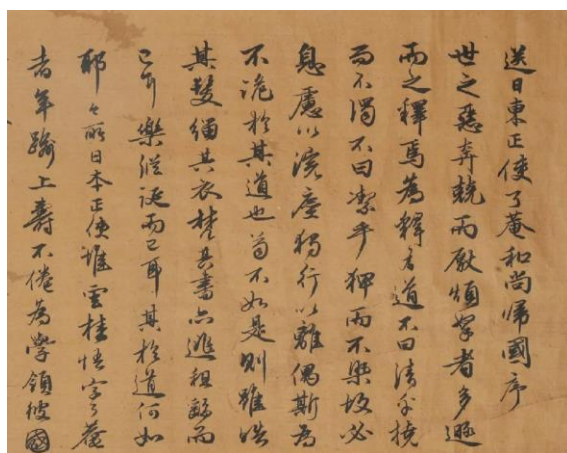 送日東正使了菴和尚歸國序
世之惡奔競而厭煩拏者多遯
而之釋焉為釋有道不曰清乎撓
而不濁不曰潔乎狎而不染故必
息慮以浣塵獨行以離偶斯為
不詭於其道也苟不如是則雖皓
其髮緇其衣梵其書亦逃租繇而
已耳樂縱誕而已耳其於道何如
耶今有日本正使堆雲桂悟字了菴
者年踰上壽不倦為學領彼國